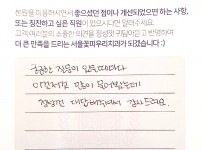 본원을 이용하시면서 좋으셨던 점이나 개선되었으면 하는 사항,
또는 칭찬하고 싶은 직원이 있으시다면 말려주세요.
고객 여러분의 소중한 의견을 정성껏 귀담아듣고 반영하여
더 큰 만족을 드리는 서울꽃피우리치과가 되겠습니다 :)
궁금한 점들이 있을때마다
이것저것 많이 물어봤는데
친절히 대답해주셔서 감사드려요.